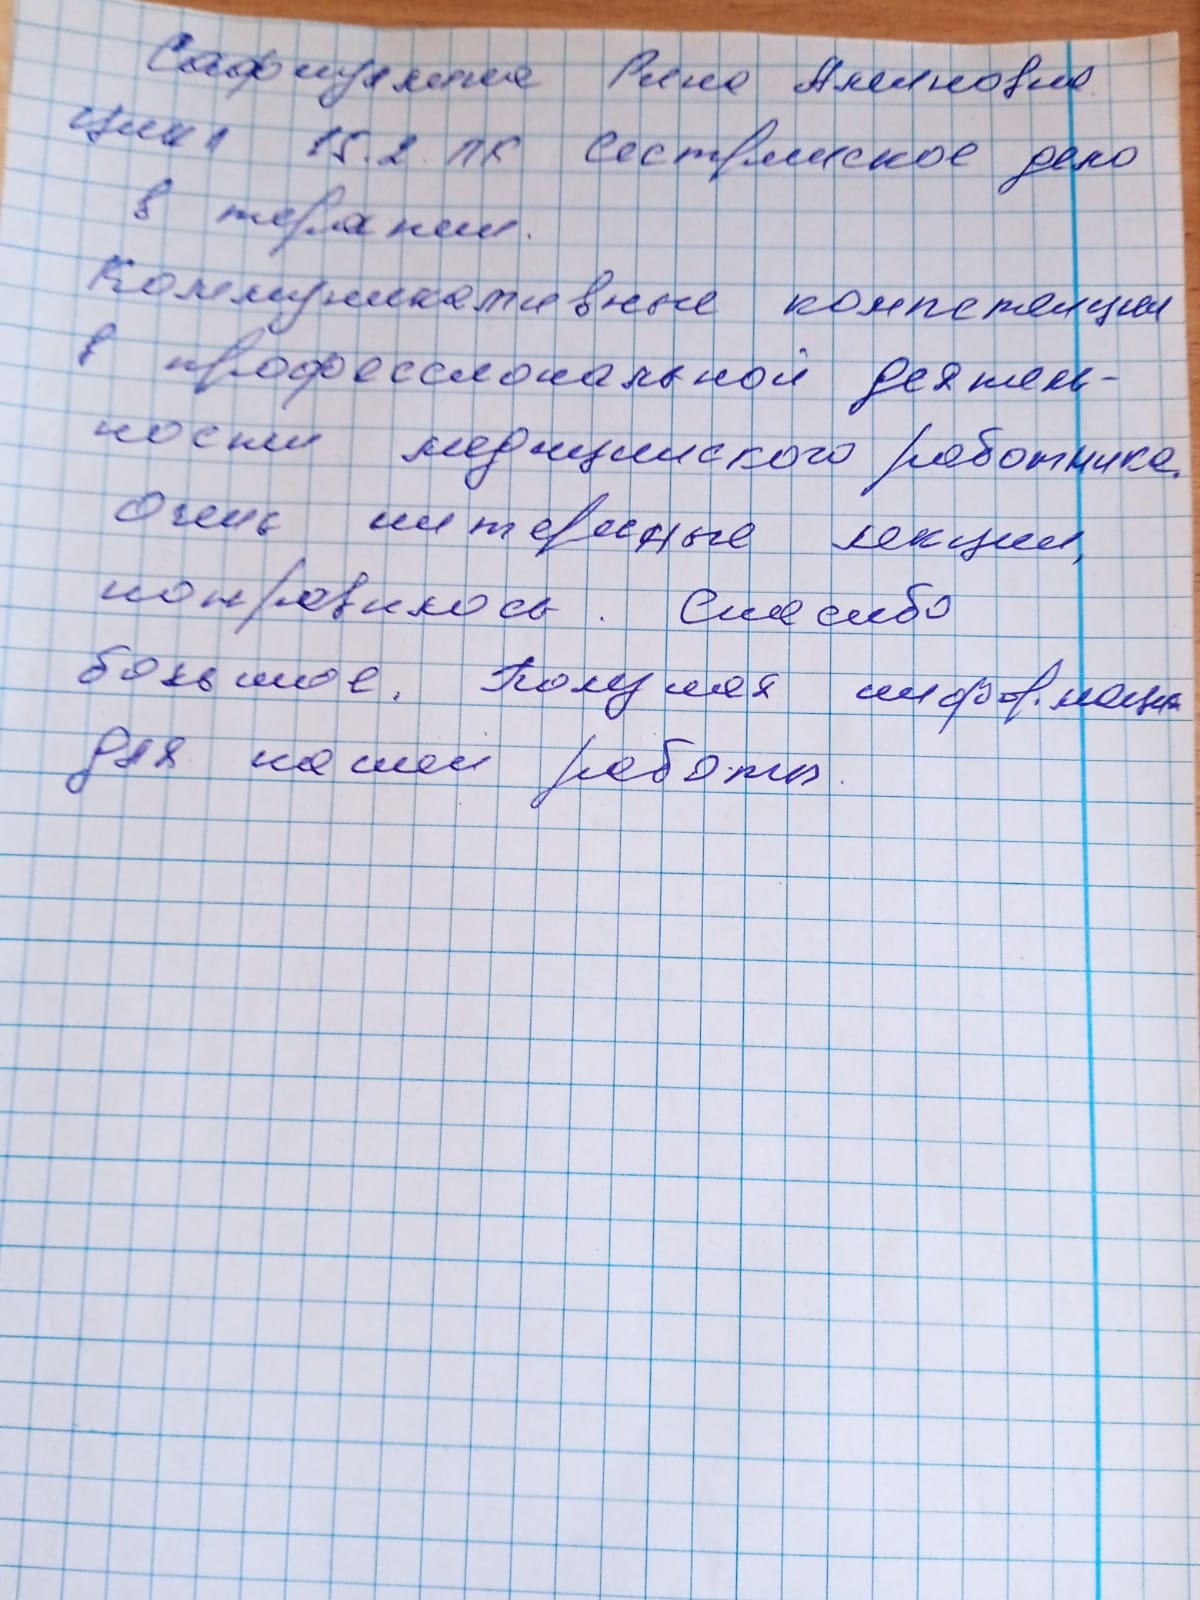 Сафиуллина Рина
цикл 15.2 ПК Сестринское дело
в терапии.
Коммуникативные компетенции
в профессиональной деятель-
ности медицинского работника.
Очень интересные лекции,
понравилось. Спасибо
большое. Полезная
для нашей работы.